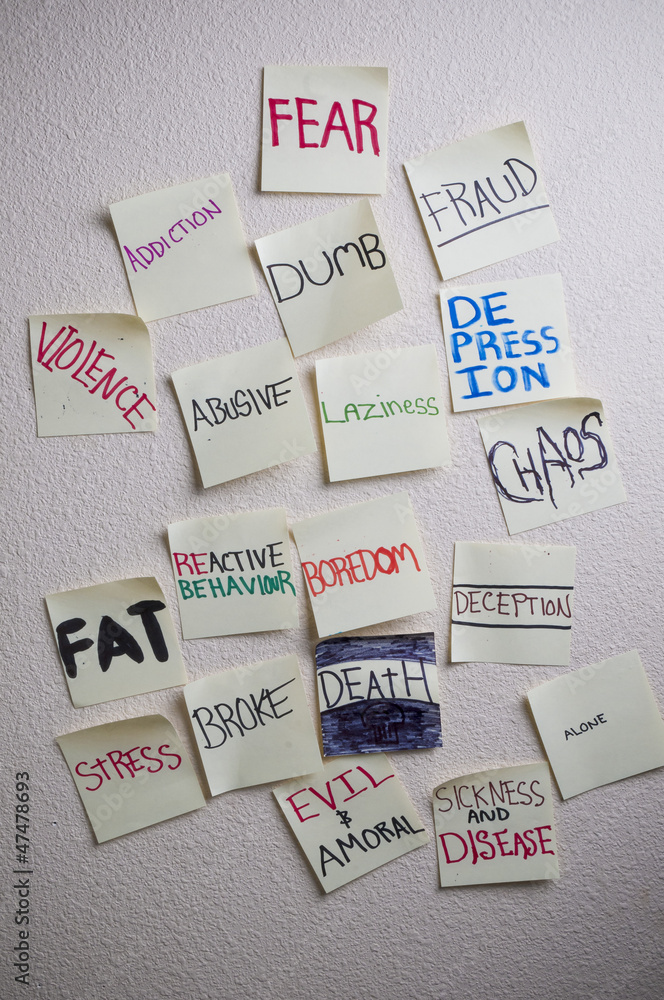 FEAR
FRAUD
ADDICTION
DUMB
DE
PRESS
ION
VIOLENCE
ABUSIVE
LAZINESS
CHAOS
REACTIVE
BEHAVIOUR
BOREDOM
DECEPTION
FAT
BROKE
DEATH
ALONE
STRESS
EVIL
&
AMORAL
SICKNESS
AND
DISEASE
Adobe Stock | #47478693